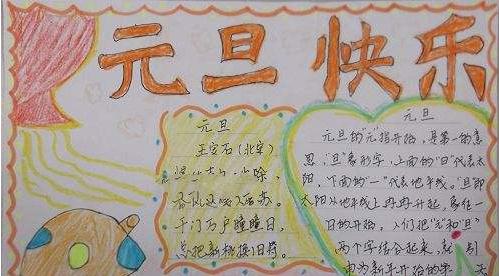 元旦快乐
元旦
王安石(北宋)
除,
千门万户瞳瞳日,
总把新桃换旧符。
元旦
元旦的"元"指开始,是第一的意
思,"旦"象形字,上面的"日"代表太
阳,下面的"一"代表地平线。"旦"即
太阳从地平线上冉冉升起,象征一
日的开始。人们把"元"和"旦"
两个字结合起来,就引
申为新年开始的第一天